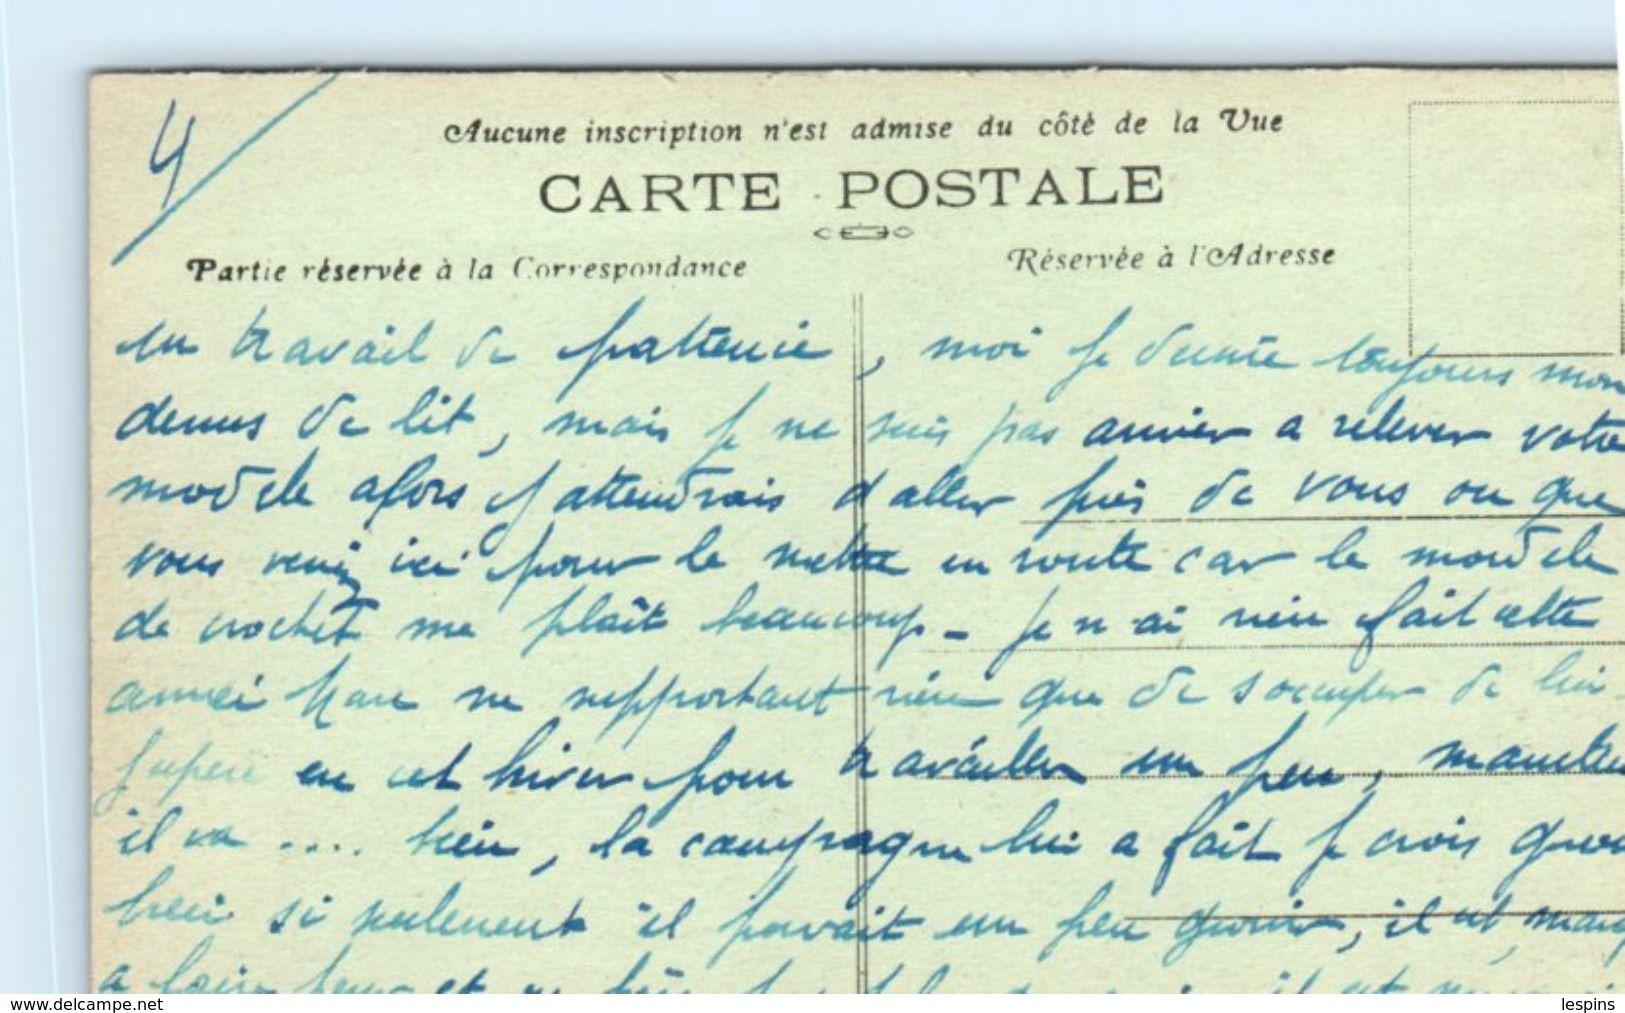 4
Aucune inscription n'est admise du côté de la Vue
CARTE POSTALE
Partie réservée à la Correspondance
Réservée à l'Adresse
un travail de , moi je toujours mon
dessus de lit, mais je ne suis pas arriver a relever votre
modele alors j attendrais d aller près de vous ou que
vous veniez ici pour le mettre en route car le modele
de crochet me plait beaucoup - Je n ai rien fait cette
année ne supportant rien que de s occuper de lui
en cet hiver pour travailler un peu,
il va .... bien, la campagne lui a fait je crois
bien si seulement il pouvait un peu guérir, il est
peur et
delcampe.net
lespins